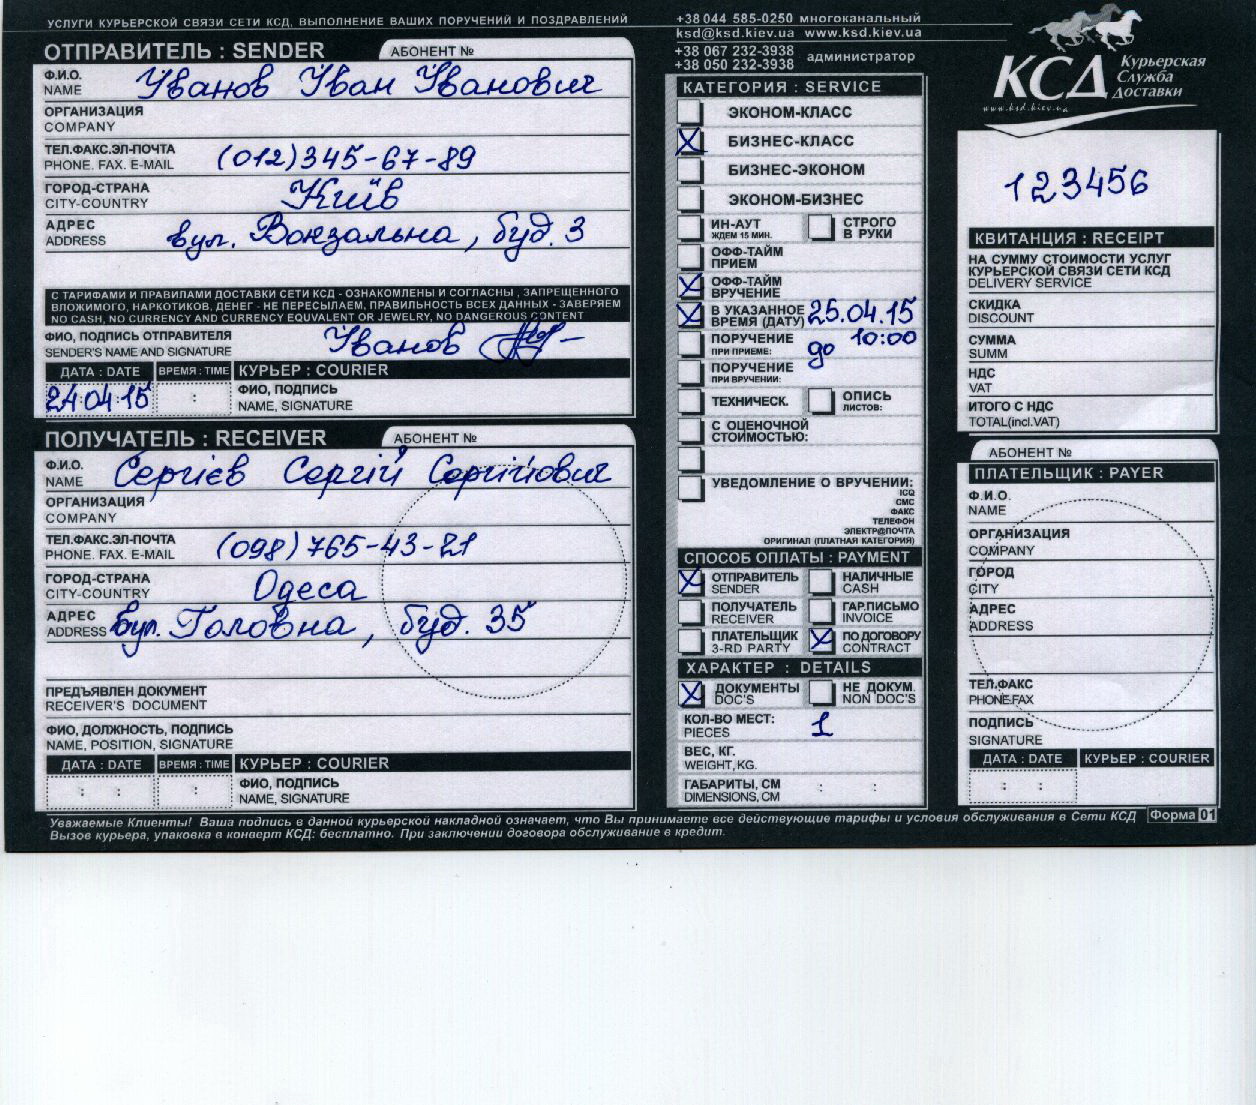 УСЛУГИ КУРЬЕРСКОЙ СВЯЗИ СЕТИ КСД, ВЫПОЛНЕНИЕ ВАШИХ ПОРУЧЕНИЙ И ПОЗДРАВЛЕНИЙ
ОТПРАВИТЕЛЬ : SENDER
АБОНЕНТ №
Ф.И.О. Іванов Іван Іванович
NAME
ОРГАНИЗАЦИЯ
COMPANY
ТЕЛ.ФАКС.ЭЛ-ПОЧТА (012)345-67-89
PHONE. FAX. E-MAIL
ГОРОД-СТРАНА Київ
CITY-COUNTRY
АДРЕС вул. Вокзальна, буд. 3
ADDRESS
С ТАРИФАМИ И ПРАВИЛАМИ ДОСТАВКИ СЕТИ КСД - ОЗНАКОМЛЕНЫ И СОГЛАСНЫ , ЗАПРЕЩЕННОГО
ВЛОЖИМОГО, НАРКОТИКОВ, ДЕНЕГ - НЕ ПЕРЕСЫЛАЕМ, ПРАВИЛЬНОСТЬ ВСЕХ ДАННЫХ - ЗАВЕРЯЕМ
NO CASH, NO CURRENCY AND CURRENCY EQUVALENT OR JEWELRY, NO DANGEROUS CONTENT
ФИО, ПОДПИСЬ ОТПРАВИТЕЛЯ Іванов
SENDER'S NAME AND SIGNATURE
ДАТА : DATE ВРЕМЯ : TIME КУРЬЕР : COURIER
24:04:15 : ФИО, ПОДПИСЬ
NAME, SIGNATURE
ПОЛУЧАТЕЛЬ : RECEIVER
АБОНЕНТ №
Ф.И.О. Сергієв Сергій Сергійович
NAME
ОРГАНИЗАЦИЯ
COMPANY
ТЕЛ.ФАКС.ЭЛ-ПОЧТА (098)765-43-21
PHONE. FAX. E-MAIL
ГОРОД-СТРАНА Одеса
CITY-COUNTRY
АДРЕС вул. Головна, буд. 35
ADDRESS
ПРЕДЪЯВЛЕН ДОКУМЕНТ
RECEIVER'S DOCUMENT
ФИО, ДОЛЖНОСТЬ, ПОДПИСЬ
NAME, POSITION, SIGNATURE
ДАТА : DATE ВРЕМЯ : TIME КУРЬЕР : COURIER
: : : ФИО, ПОДПИСЬ
NAME, SIGNATURE
+38 044 585-0250 многоканальный
ksd@ksd.kiev.ua www.ksd.kiev.ua
+38 067 232-3938
+38 050 232-3938 администратор
КАТЕГОРИЯ : SERVICE
ЭКОНОМ-КЛАСС
X БИЗНЕС-КЛАСС
БИЗНЕС-ЭКОНОМ
ЭКОНОМ-БИЗНЕС
ИН-АУТ СТРОГО
ЖДЕМ 15 МИН. В РУКИ
ОФФ-ТАЙМ
ПРИЕМ
X ОФФ-ТАЙМ
ВРУЧЕНИЕ
X В УКАЗАННОЕ 25.04.15
ВРЕМЯ (ДАТУ)
ПОРУЧЕНИЕ до 10:00
ПРИ ПРИЕМЕ:
ПОРУЧЕНИЕ
ПРИ ВРУЧЕНИИ:
ТЕХНИЧЕСК. ОПИСЬ
ЛИСТОВ:
С ОЦЕНОЧНОЙ
СТОИМОСТЬЮ:
УВЕДОМЛЕНИЕ О ВРУЧЕНИИ:
ICQ
СМС
ФАКС
ТЕЛЕФОН
ЭЛЕКТР@ПОЧТА
ОРИГИНАЛ (ПЛАТНАЯ КАТЕГОРИЯ)
СПОСОБ ОПЛАТЫ : PAYMENT
X ОТПРАВИТЕЛЬ НАЛИЧНЫЕ
SENDER CASH
ПОЛУЧАТЕЛЬ ГАР.ПИСЬМО
RECEIVER INVOICE
ПЛАТЕЛЬЩИК X ПО ДОГОВОРУ
3-RD PARTY CONTRACT
ХАРАКТЕР : DETAILS
X ДОКУМЕНТЫ НЕ ДОКУМ.
DOC'S NON DOC'S
КОЛ-ВО МЕСТ: 1
PIECES
ВЕС, КГ.
WEIGHT, KG.
ГАБАРИТЫ, СМ : :
DIMENSIONS, CM
КСД Курьерская
Служба
Доставки
www.ksd.kiev.ua
123456
КВИТАНЦИЯ : RECEIPT
НА СУММУ СТОИМОСТИ УСЛУГ
КУРЬЕРСКОЙ СВЯЗИ СЕТИ КСД
DELIVERY SERVICE
СКИДКА
DISCOUNT
СУММА
SUMM
НДС
VAT
ИТОГО С НДС
TOTAL(incl.VAT)
АБОНЕНТ №
ПЛАТЕЛЬЩИК : PAYER
Ф.И.О.
NAME
ОРГАНИЗАЦИЯ
COMPANY
ГОРОД
CITY
АДРЕС
ADDRESS
ТЕЛ.ФАКС
PHONE.FAX
ПОДПИСЬ
SIGNATURE
ДАТА : DATE КУРЬЕР : COURIER
: :
Уважаемые Клиенты! Ваша подпись в данной курьерской накладной означает, что Вы принимаете все действующие тарифы и условия обслуживания в Сети КСД Форма 01
Вызов курьера, упаковка в конверт КСД: бесплатно. При заключении договора обслуживание в кредит.